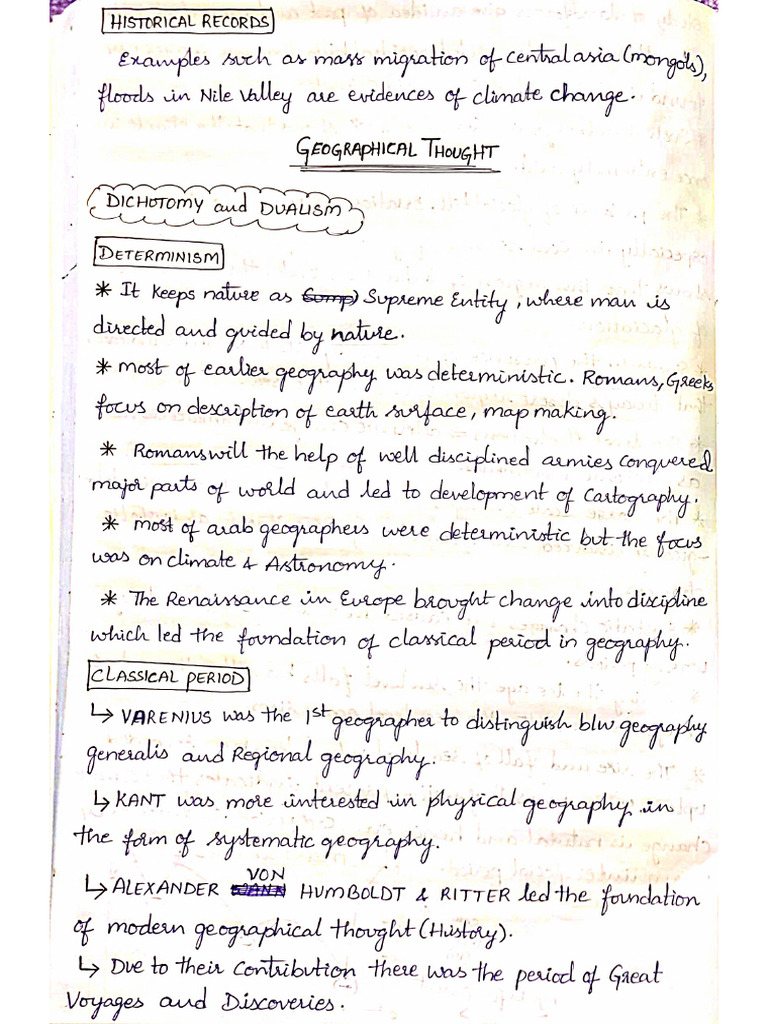 HISTORICAL RECORDS
Examples such as mass migration of Central asia (mongols),
floods in Nile Valley are evidences of climate change.
GEOGRAPHICAL THOUGHT
DICHOTOMY and DUALISM
DETERMINISM
* It keeps nature as Supreme Entity, where man is
directed and guided by nature.
* most of earlier geography was deterministic. Romans, Greeks
focus on description of earth surface, map making.
* Romans will the help of well disciplined armies conquered
major parts of world and led to development of Cartography.
* most of arab geographers were deterministic but the focus
was on climate & Astronomy.
* The Renaissance in Europe brought change into discipline
which led the foundation of classical period in geography.
CLASSICAL PERIOD
↳ VARENIUS was the 1st geographer to distinguish b/w geography
generalis and Regional geography.
↳ KANT was more interested in physical geography in
the form of systematic geography.
↳ ALEXANDER VON HUMBOLDT & RITTER led the foundation
of modern geographical thought (History).
↳ Due to their Contribution there was the period of Great
Voyages and Discoveries.